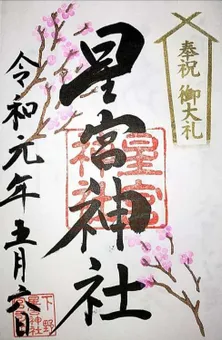 奉祝 御大礼
星宮神社
令和元年五月六日
星宮神社
下野
星宮神社